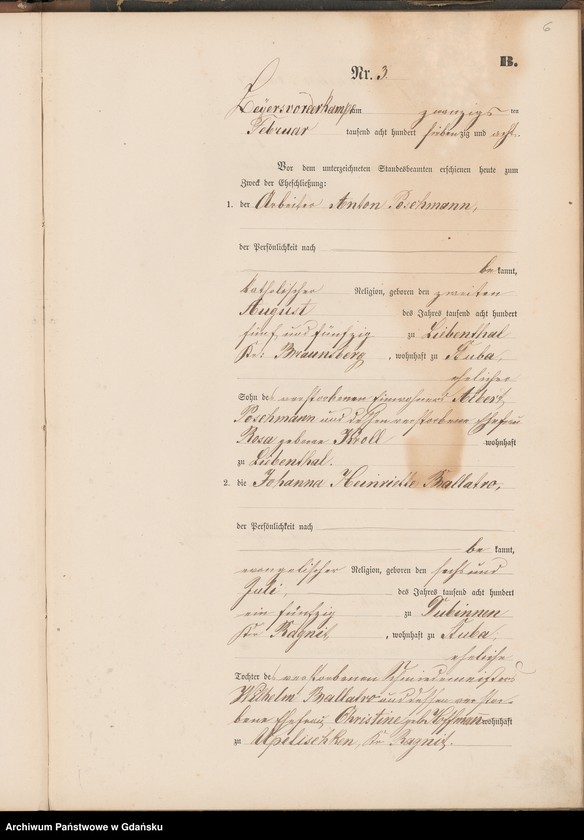 6
B.
Nr. 3
Zeyersvorderkampe am zwanzigsten
Februar tausend acht hundert siebenzig und acht.
Vor dem unterzeichneten Standesbeamten erschienen heute zum
Zweck der Eheschließung:
1. der Arbeiter Anton Poschmann,
der Persönlichkeit nach
be kannt,
katholischer Religion, geboren den zweiten
August des Jahres tausend acht hundert
fünf und fünfzig zu Liebenthal
Kr: Braunsberg, wohnhaft zu Stuba,
ehelicher
Sohn des verstorbenen Einwohners Albert
Poschmann und dessen verstorbene Ehefrau
Rosa geborene Kroll wohnhaft
zu Liebenthal.
2. die Johanna Heinriette Ballatro,
der Persönlichkeit nach
be kannt,
evangelischer Religion, geboren den
Juli, des Jahres tausend acht hundert
ein fünfzig zu Tubinnen
Kr Ragnit, wohnhaft zu Stuba,
eheliche
Tochter des verstorbenen Schmiedemeisters
Wilhelm Ballatro und dessen verstor-
bene Ehefrau Christine geb. Hoffmann wohnhaft
zu Kr Ragnit.
Archiwum Państwowe w Gdańsku